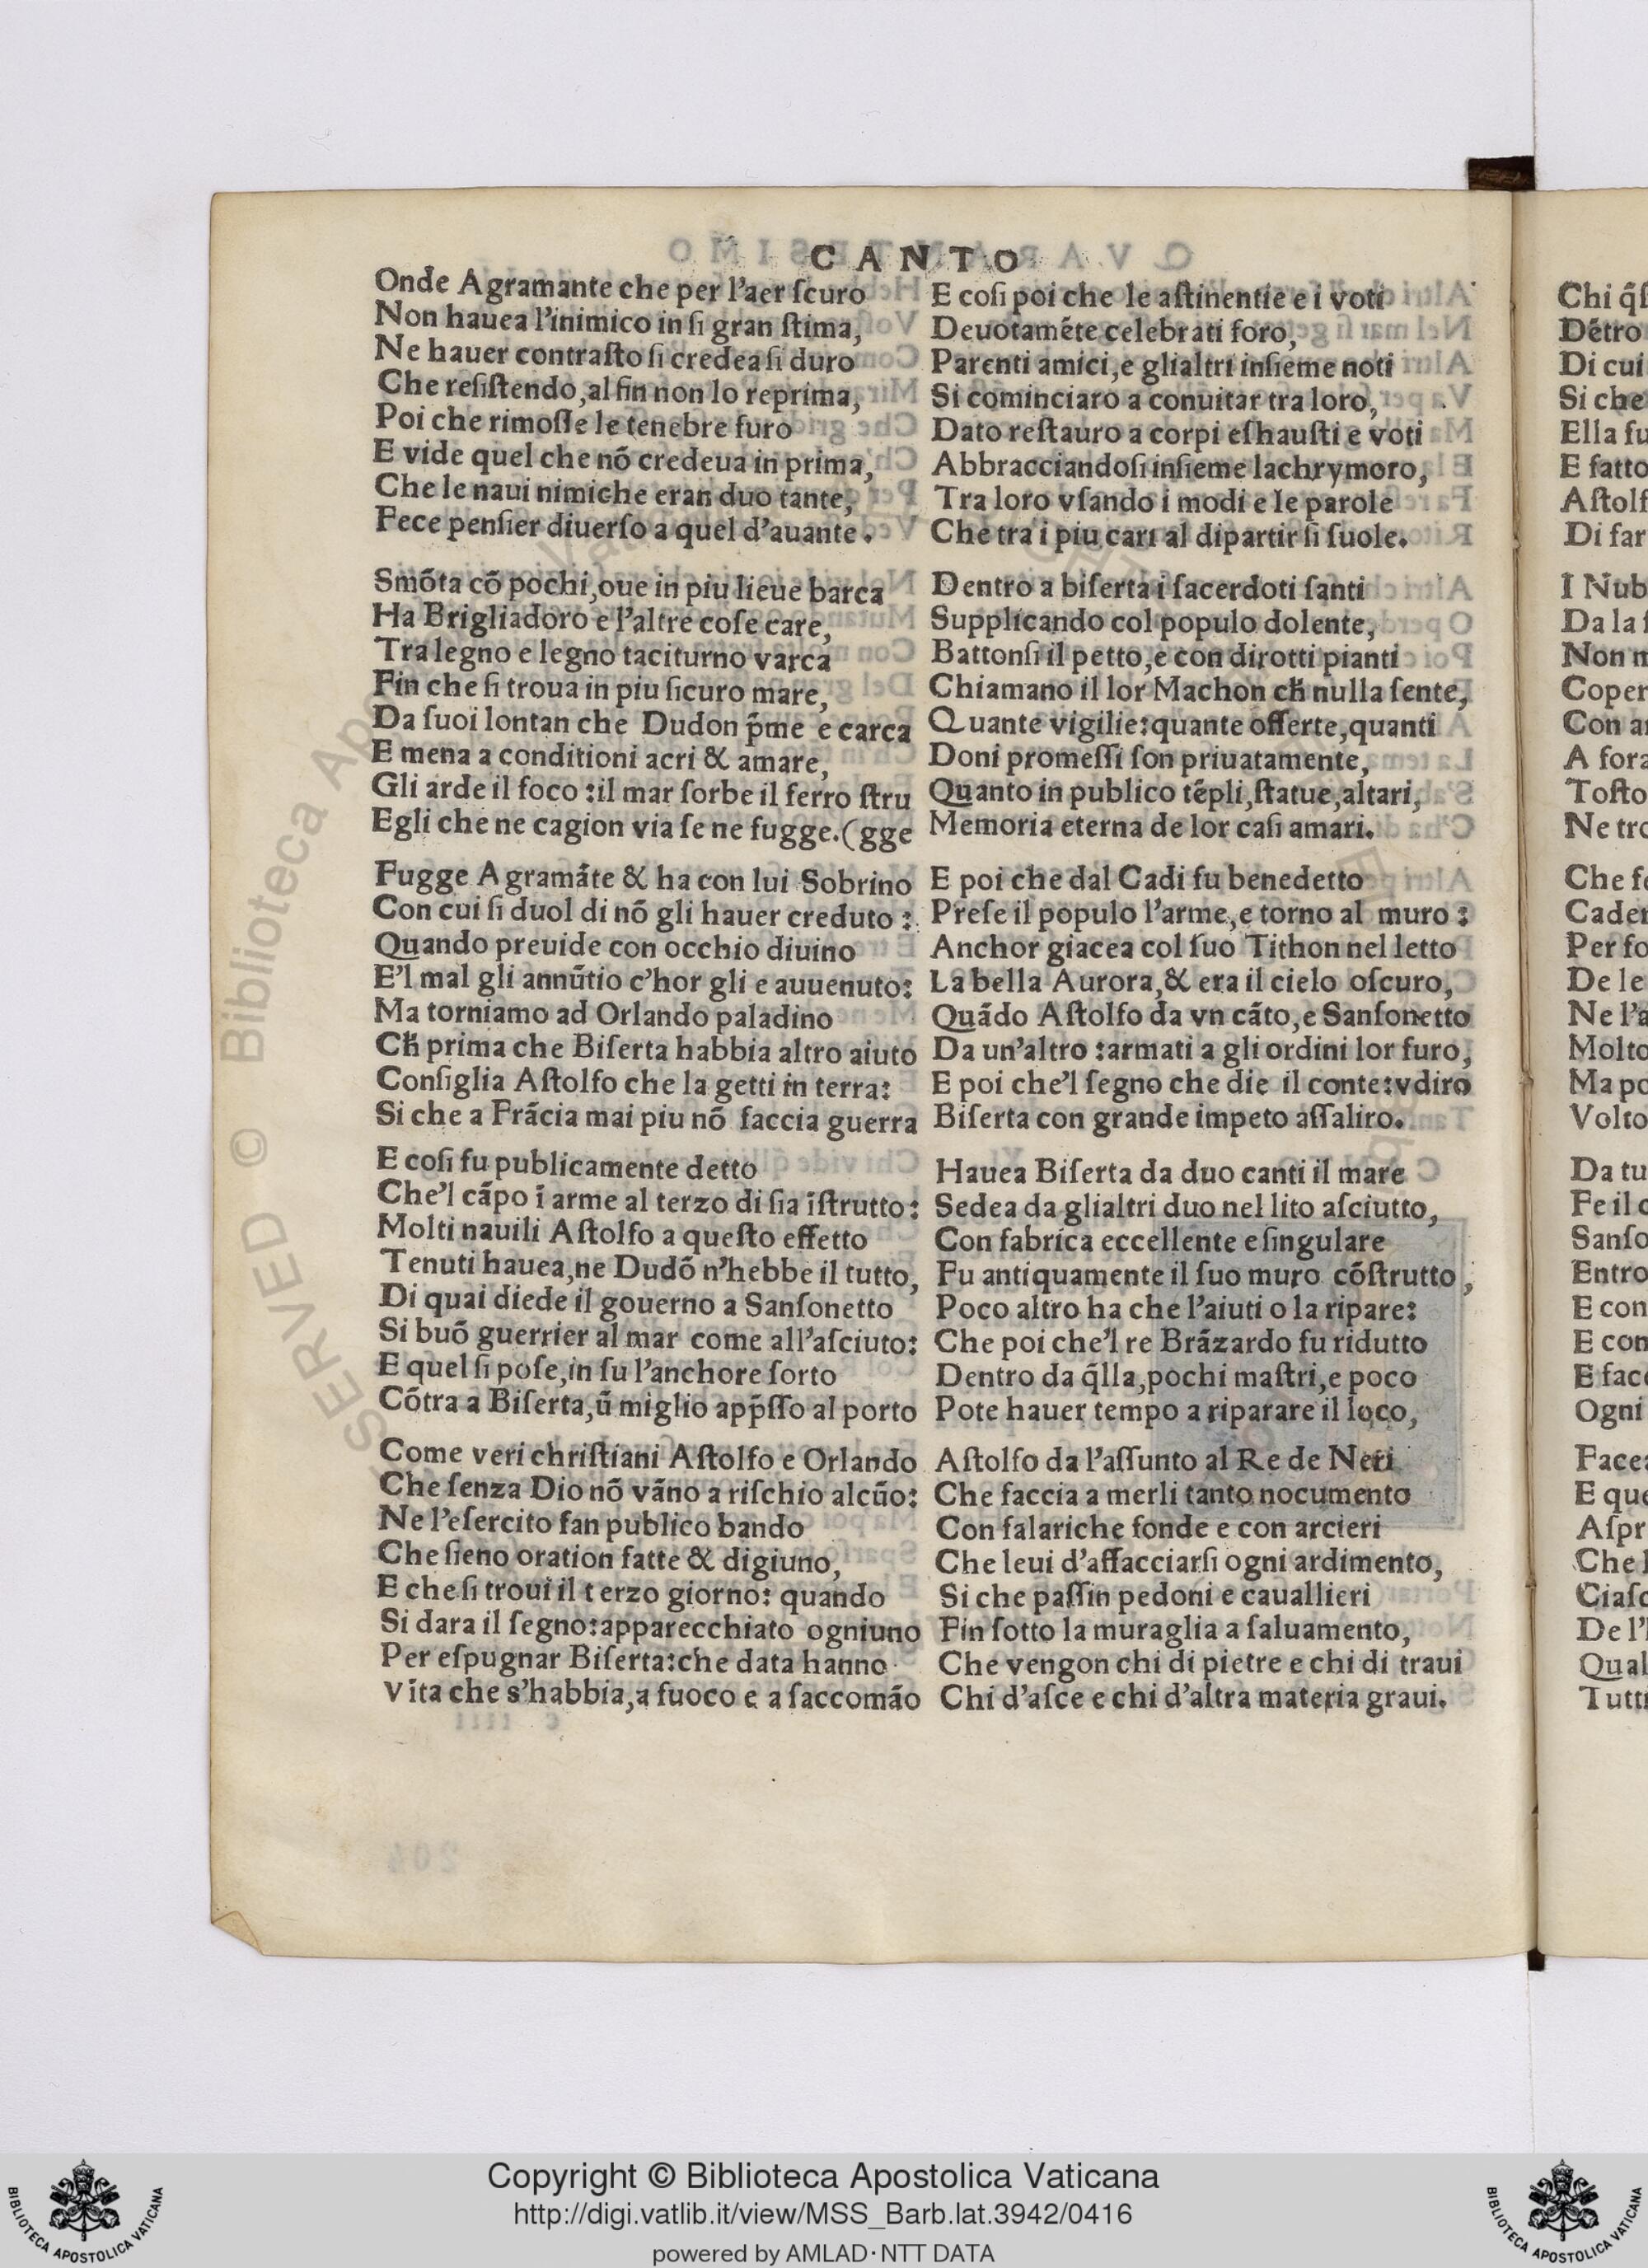 CANTO
Onde Agramante che per l'aer ſcuro
Non hauea l'inimico in ſi gran ſtima,
Ne hauer contraſto ſi credea ſi duro
Che reſiſtendo, al fin non lo reprima,
Poi che rimoſſe le tenebre furo
E vide quel che nõ credeua in prima,
Che le naui nimiche eran duo tante,
Fece penſier diuerſo a quel d'auante.
Smõta cõ pochi, oue in piu lieue barca
Ha Brigliadoro e l'altre coſe care,
Tra legno e legno taciturno varca
Fin che ſi troua in piu ſicuro mare,
Da ſuoi lontan che Dudon p̃me e carca
E mena a conditioni acri & amare,
Gli arde il foco : il mar ſorbe il ferro ſtru
Egli che ne cagion via ſe ne fugge. (gge
Fugge Agramãte & ha con lui Sobrino
Con cui ſi duol di nõ gli hauer creduto :
Quando preuide con occhio diuino
E'l mal gli annũtio c'hor gli e auuenuto:
Ma torniamo ad Orlando paladino
Cħ prima che Biſerta habbia altro aiuto
Conſiglia Aſtolfo che la getti in terra:
Si che a Frãcia mai piu nõ faccia guerra
E coſi fu publicamente detto
Che'l cãpo ĩ arme al terzo di ſia ĩſtrutto:
Molti nauili Aſtolfo a queſto effetto
Tenuti hauea, ne Dudõ n'hebbe il tutto,
Di quai diede il gouerno a Sanſonetto
Si buõ guerrier al mar come all'aſciuto:
E quel ſi poſe, in ſu l'anchore ſorto
Cõtra a Biſerta, ũ miglio app̃ſſo al porto
Come veri chriſtiani Aſtolfo e Orlando
Che ſenza Dio nõ vãno a riſchio alcũo:
Ne l'eſercito fan publico bando
Che ſieno oration fatte & digiuno,
E che ſi troui il terzo giorno: quando
Si dara il ſegno: apparecchiato ogniuno
Per eſpugnar Biſerta: che data hanno
Vita che s'habbia, a fuoco e a ſaccomão
E coſi poi che le aſtinentie e i voti
Deuotamẽte celebrati foro,
Parenti amici, e glialtri inſieme noti
Si cominciaro a conuitar tra loro,
Dato reſtauro a corpi eſhauſti e voti
Abbracciandoſi inſieme lachrymoro,
Tra loro vſando i modi e le parole
Che tra i piu cari al dipartir ſi ſuole.
Dentro a biſerta i ſacerdoti ſanti
Supplicando col populo dolente,
Battonſi il petto, e con dirotti pianti
Chiamano il lor Machon cħ nulla ſente,
Quante vigilie: quante offerte, quanti
Doni promeſſi ſon priuatamente,
Quanto in publico tẽpli, ſtatue, altari,
Memoria eterna de lor caſi amari.
E poi che dal Cadi fu benedetto
Preſe il populo l'arme, e torno al muro :
Anchor giacea col ſuo Tithon nel letto
La bella Aurora, & era il cielo oſcuro,
Quãdo Aſtolfo da vn cãto, e Sanſonetto
Da un'altro : armati a gli ordini lor furo,
E poi che'l ſegno che die il conte: vdiro
Biſerta con grande impeto aſſaliro.
Hauea Biſerta da duo canti il mare
Sedea da glialtri duo nel lito aſciutto,
Con fabrica eccellente e ſingulare
Fu antiquamente il ſuo muro cõſtrutto,
Poco altro ha che l'aiuti o la ripare:
Che poi che'l re Brãzardo fu ridutto
Dentro da q̃lla, pochi maſtri, e poco
Pote hauer tempo a riparare il loco,
Aſtolfo da l'aſſunto al Re de Neri
Che faccia a merli tanto nocumento
Con falariche fonde e con arcieri
Che leui d'affacciarſi ogni ardimento,
Si che paſſin pedoni e cauallieri
Fin ſotto la muraglia a ſaluamento,
Che vengon chi di pietre e chi di traui
Chi d'aſce e chi d'altra materia graui.
Dẽtro
Di cui
Si che
Ella fu
E fatto
Di far
I Nub
Da la
Coper
Con a
A fora
Toſto
Ne tro
Che fe
Cader
Per fo
De le
Ne l'a
Molto
Ma po
Volto
Da tu
Fe il c
Sanſo
Entro
E con
E con
E fac
Ogni
Face
E que
Aſpr
Che
Ciaſc
De l'
Qual
Tutti
204
© Biblioteca Apo
SERVED
Copyright © Biblioteca Apostolica Vaticana
http://digi.vatlib.it/view/MSS_Barb.lat.3942/0416
powered by AMLAD·NTT DATA
BIBLIOTECA APOSTOLICA VATICANA
BIBLIOTECA APOSTOLICA VATICANA